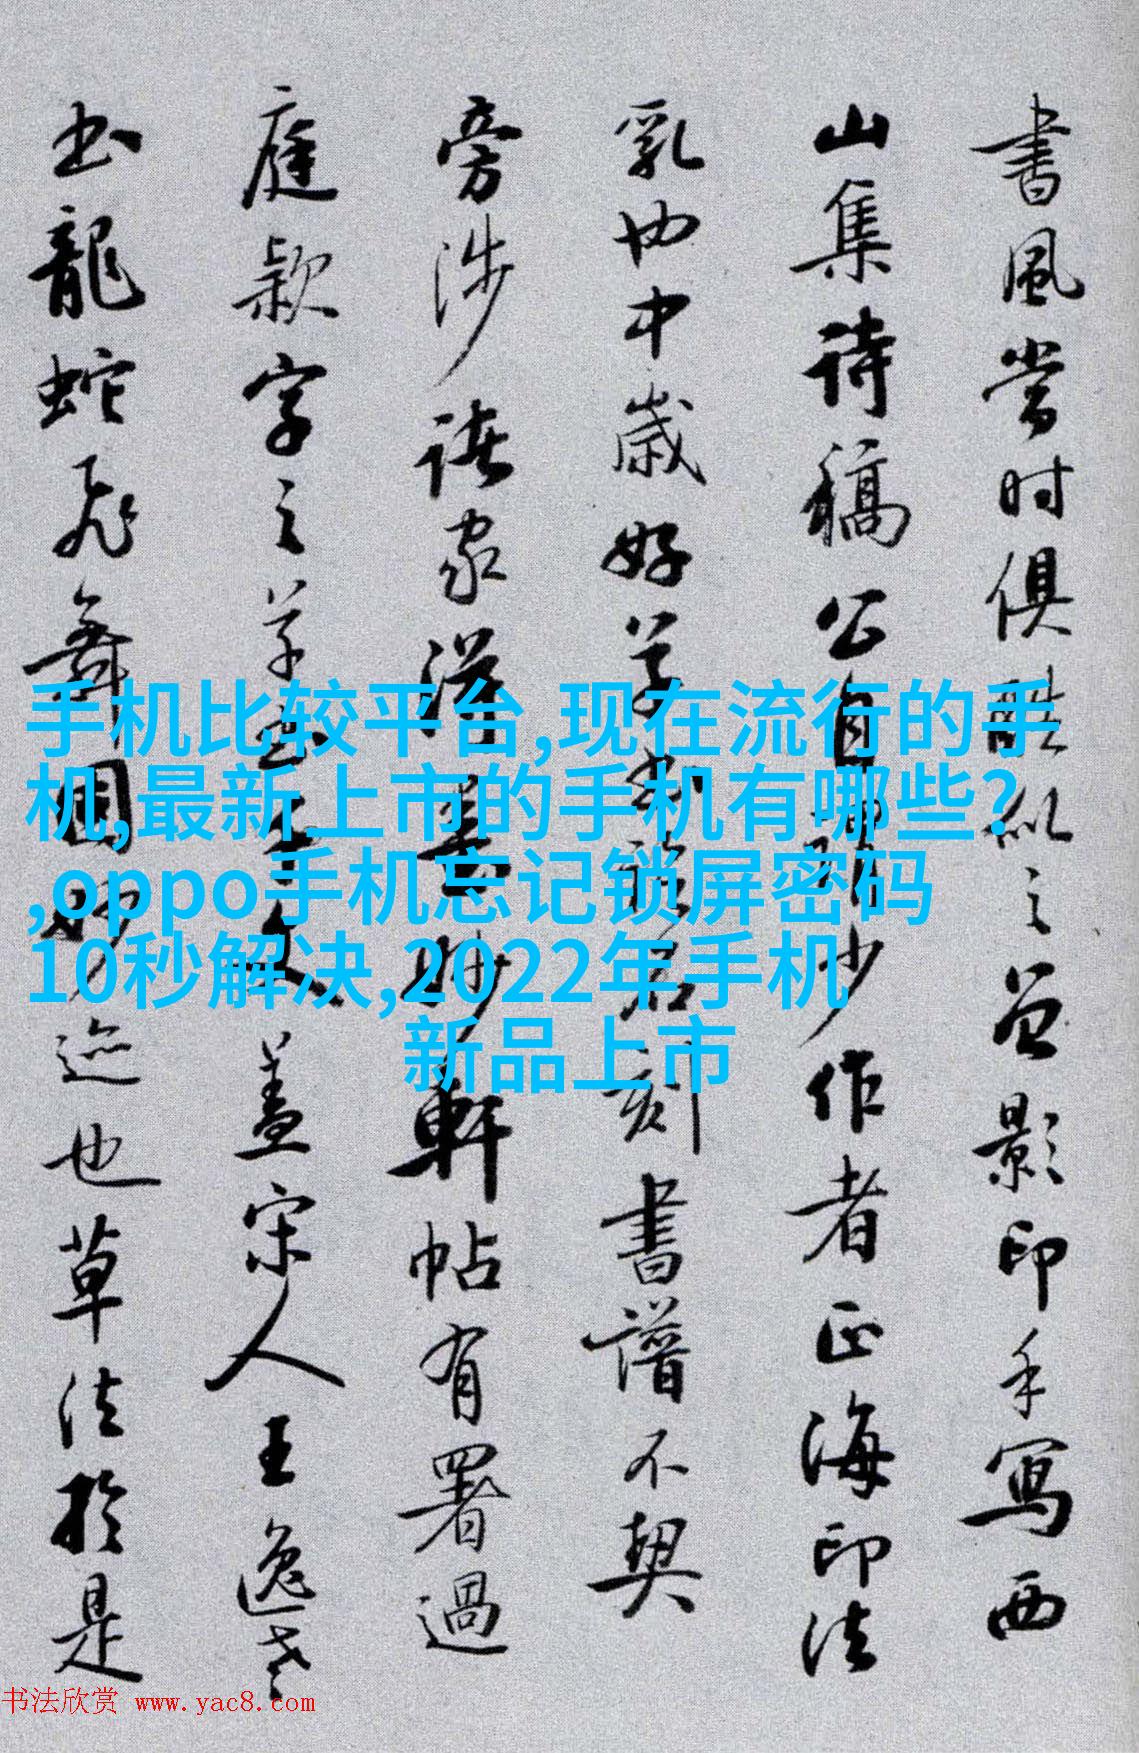 書風當时俱酷似之益影印手寫西
山集诗稿公自晦少作者正海印法
乳也中歲好草書
刻書譜不契
旁涉诸家洋
妙軒帖有署過
庭款字之草書
文蓋宋人王逸老
书龍蛇飛舞固妙迹也草法於是
手机比较平台,现在流行的手
机,最新上市的手机有哪些?
,oppo手机忘记锁屏密码
10秒解决,2022年手机
新品上市
书法欣赏 www.yac8.com